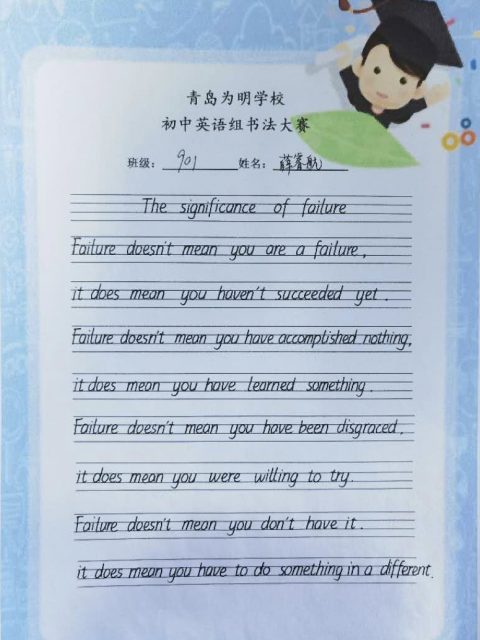 青岛为明学校
初中英语组书法大赛
班级: 901 姓名: 薛睿航
The significance of failure
Failure doesn't mean you are a failure,
it does mean you haven't succeeded yet.
Failure doesn't mean you have accomplished nothing,
it does mean you have learned something.
Failure doesn't mean you have been disgraced,
it does mean you were willing to try.
Failure doesn't mean you don't have it.
it does mean you have to do something in a different.